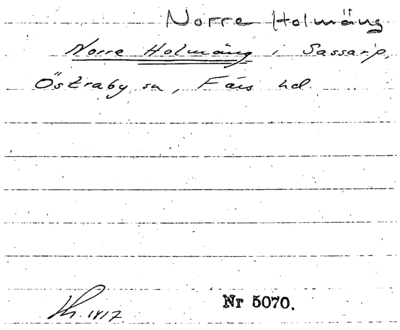 Norre Holmäng
Norre Holmäng i Sassarp,
Östraby sn, Färs hd.
1817
Nr 5070.